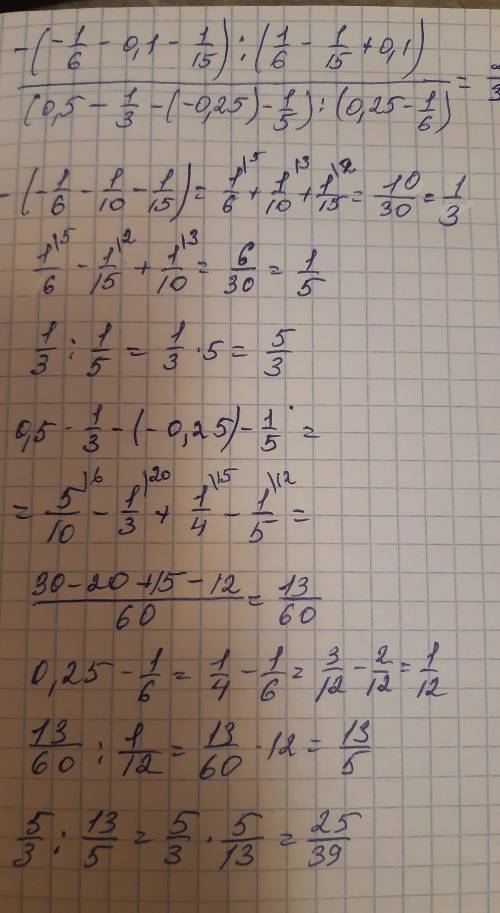 -(-1/6 - 0,1 - 1/15) : (1/6 - 1/15 + 0,1)
(0,5 - 1/3 - (-0,25) - 1/5) : (0,25 - 1/6) =
-(-1/6 - 1/10 - 1/15) = 1\5/6 + 1\3/10 + 1\2/15 = 10/30 = 1/3
1\5/6 - 1\2/15 + 1\3/10 = 6/30 = 1/5
1/3 : 1/5 = 1/3 · 5 = 5/3
0,5 - 1/3 - (-0,25) - 1/5 =
= 5\6/10 - 1\20/3 + 1\15/4 - 1\12/5 =
30-20+15-12/60 = 13/60
0,25 - 1/6 = 1/4 - 1/6 = 3/12 - 2/12 = 1/12
13/60 : 1/12 = 13/60 · 12 = 13/5
5/3 : 13/5 = 5/3 · 5/13 = 25/39